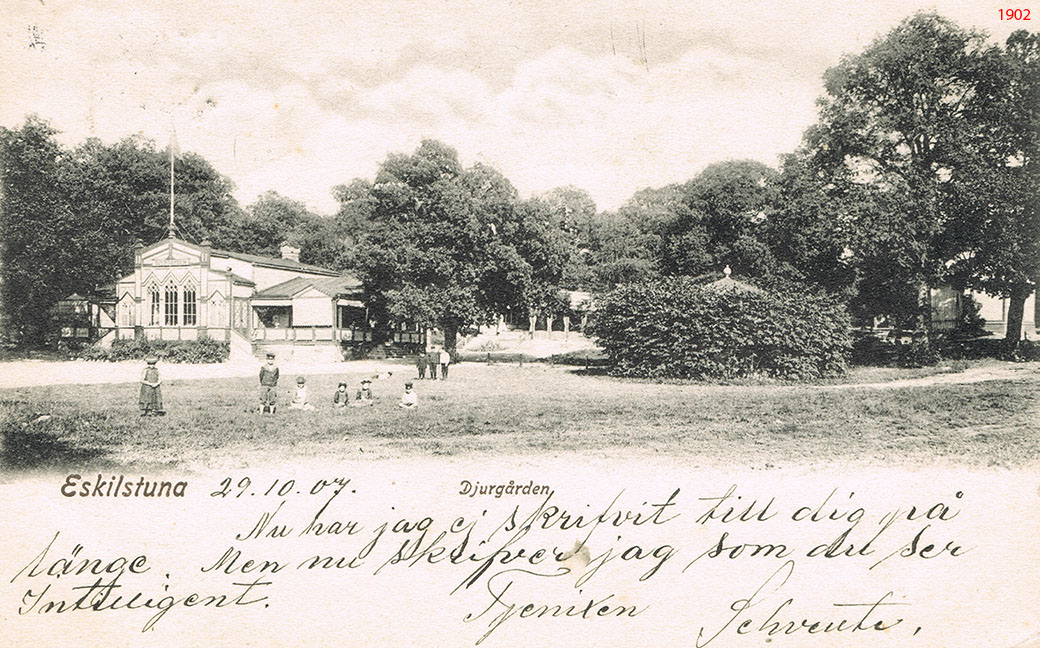 1902
Eskilstuna 29.10.07. Djurgården
Nu har jag ej skrifvit till dig på
länge. Men nu skrifver jag som du ser
Intilligent. Tjenixen